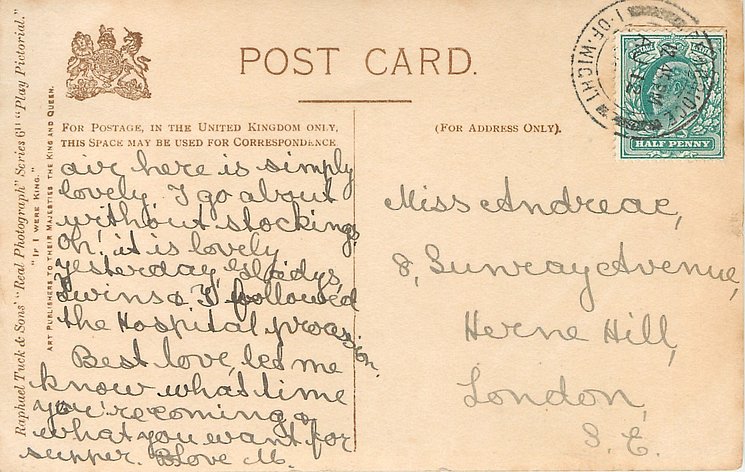 POST CARD.
FOR POSTAGE, IN THE UNITED KINGDOM ONLY,
THIS SPACE MAY BE USED FOR CORRESPONDENCE
(FOR ADDRESS ONLY).
Raphael Tuck & Sons' "Real Photograph" Series 611 "Play Pictorial."
"IF I WERE KING."
ART PUBLISHERS TO THEIR MAJESTIES THE KING AND QUEEN.
air, here is simply
lovely. I go about
without stockings.
Oh, it is lovely
yesterday, Gladys,
twins & I followed
the Hospital procession.
Best love, let me
know what time
you're coming &
what you want for
supper. Love M.
Miss Andreae,
8, Sunray Avenue,
Herne Hill,
London,
S. E.
I. OF. WIGHT
HALF PENNY